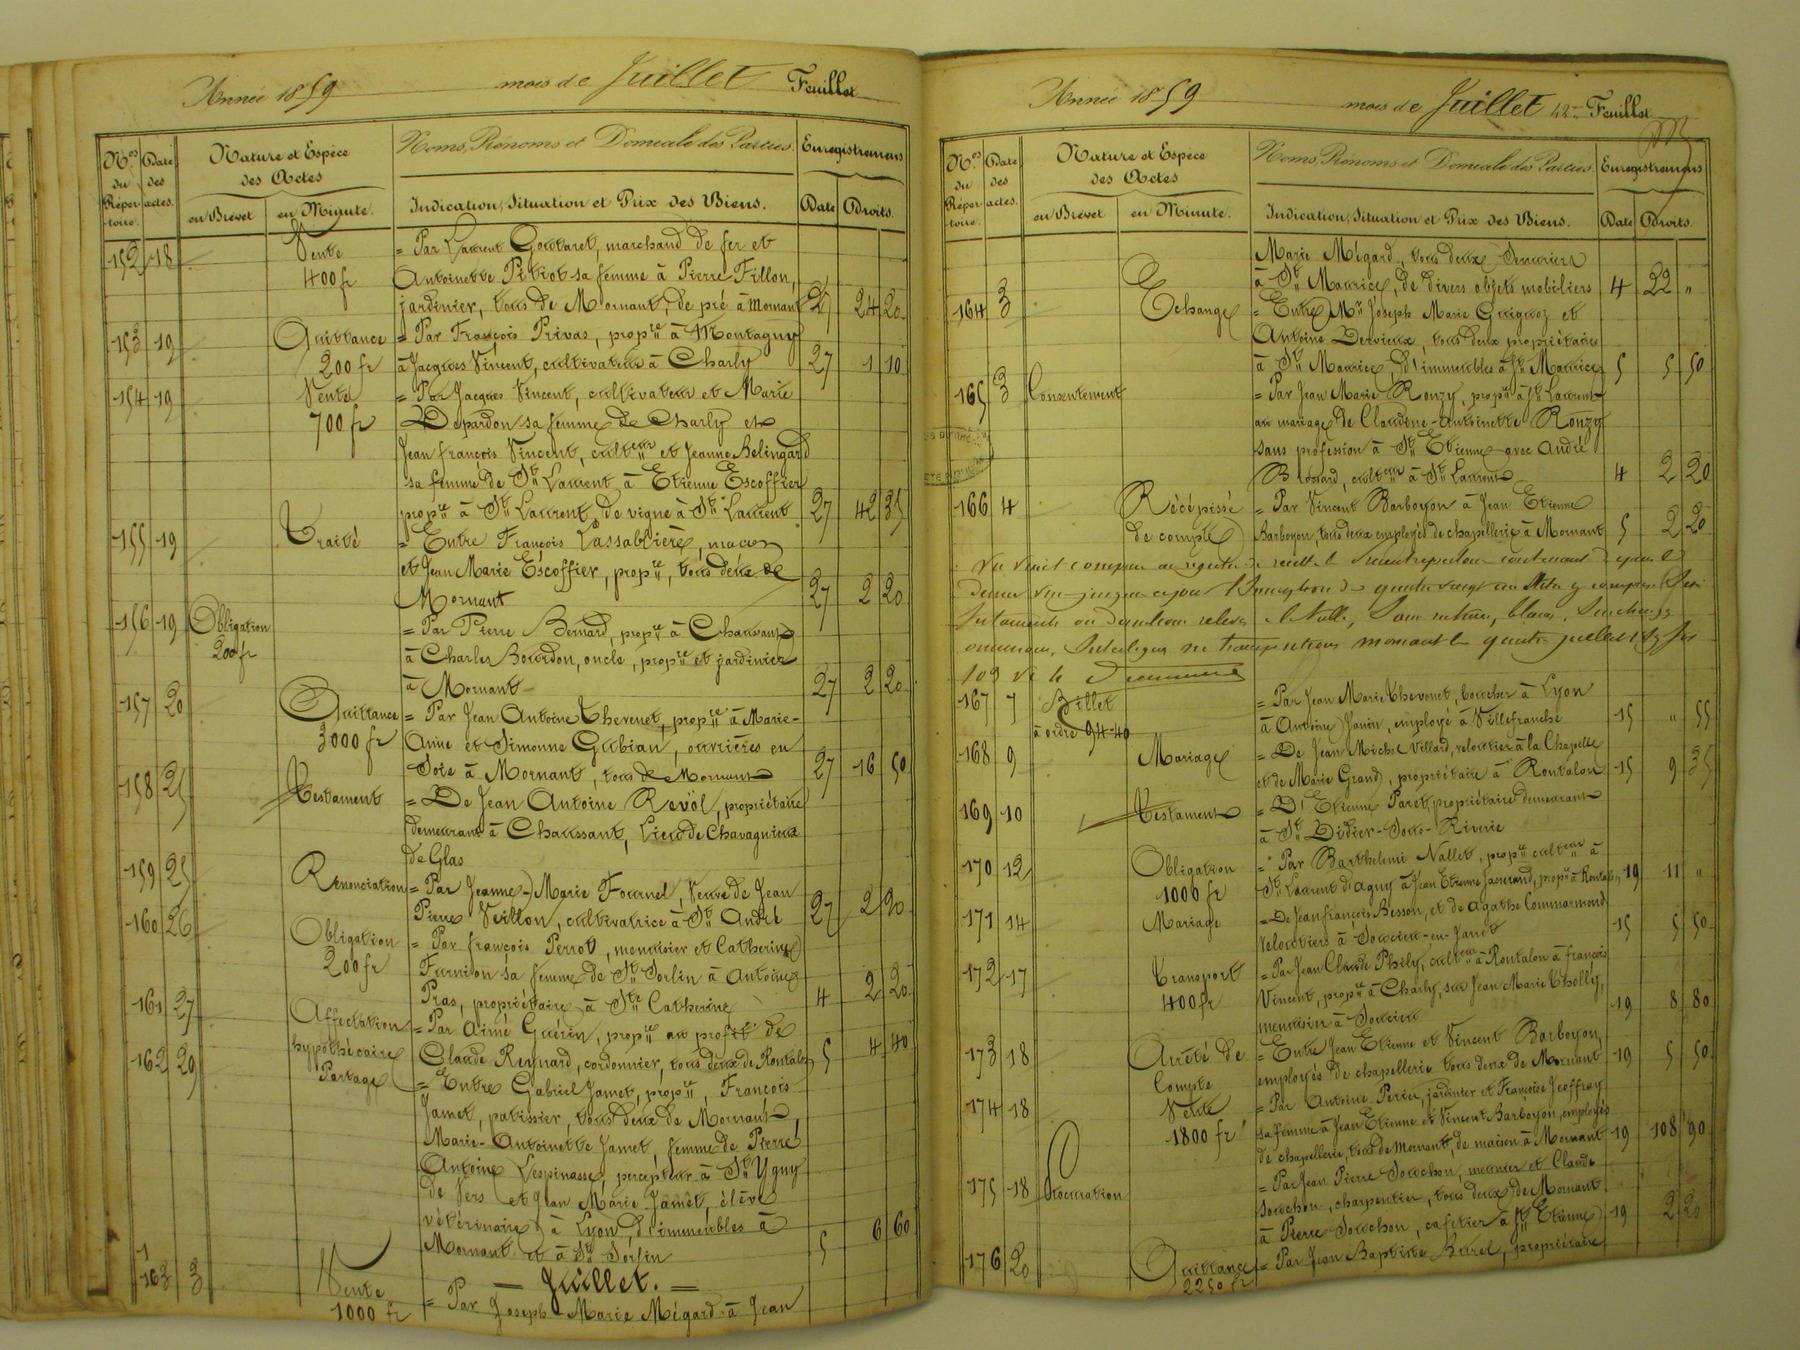 Année 1859 mois de Juillet Feuillet
Nos du Répertoire. Date des actes. Nature et Espèce des Actes en Brevet en Minute. Noms, Prénoms et Domicile des Parties. Indication, Situation et Prix des Biens. Enregistremens Date Droits.
152 18 Vente = Par Laurent Goutaret, marchand de fer et
400 fr Antoinette Pitiot sa femme à Pierre Fillon,
jardinier, tous de Mornant, de pré à Mornant 27 24 20
153 19 Quittance = Par François Privas, prop.re à Montagny
200 fr à Jacques Vincent, cultivateur à Charly 27 1 10
154 19 Vente = Par Jacques Vincent, cultivateur et Marie
700 fr Depardon sa femme de Charly et
Jean françois Vincent, cult.eur et Jeanne Belingard
sa femme de St Laurent à Etienne Escoffier
prop.re à St Laurent, de vigne à St Laurent 27 42 35
155 19 Traité = Entre François Lassablière, maçon
et Jean Marie Escoffier, prop.re, tous deux de
Mornant 27 2 20
156 19 Obligation = Par Pierre Bernard, prop.re à Chaussant
200 fr à Charles Bourdon, oncle, prop.re et jardinier
à Mornant 27 2 20
157 20 Quittance = Par Jean Antoine Thevenet, prop.re à Marie-
3000 fr Anne et Simonne Gubian, ouvrières en
Soie à Mornant, tous de Mornant 27 16 50
158 25 Testament = De Jean Antoine Revol, propriétaire
demeurant à Chaussant, Lieu de Chavagnieux
de Glas
159 25 Renonciation = Par Jeanne-Marie Fournel, Veuve de Jean
Pierre Veillon, cultivatrice à St André 27 2 20
160 26 Obligation = Par françois Perrot, menuisier et Catherine
200 fr Furnion sa femme de St Sorlin à Antoine
Pras, propriétaire à Ste Catherine 4 2 20
161 27 Affectation = Par Aimé Guérin, prop.re au profit de
hypothécaire Claude Reynard, cordonnier, tous deux de Rontalon 5 4 40
162 29 Partage = Entre Gabriel Jamet, prop.re, François
Jamet, patissier, tous deux de Mornant,
Marie-Antoinette Jamet, femme de Pierre
Antoine Lespinasse, percepteur à St Ygny
de Vers et Jean Marie Jamet, élève
vétérinaire à Lyon, d'immeubles à
Mornant et à St Sorlin 5 6 60
= Juillet. =
163 3 Vente = Par Joseph-Marie Mégard à Jean
1000 fr
Année 1859 mois de Juillet 42me Feuillet
Nos du Répertoire. Date des actes. Nature et Espèce des Actes en Brevet en Minute. Noms, Prénoms et Domicile des Parties. Indication, Situation et Prix des Biens. Enregistremens Date Droits.
Marie Mégard, tous deux Serruriers
à St Maurice, de divers objets mobiliers 4 22 "
164 3 Echange = Entre Mr Joseph Marie Guigoz et
Antoine Dervieux, tous deux propriétaires
à St Maurice, d'immeubles à St Maurice 5 5 50
165 3 Consentement = Par Jean Marie Rouzy, prop.re à St Laurent
au mariage de Claudine-Antoinette Rouzy
sans profession à St Etienne avec André
cult.eur à St Laurent 4 2 20
166 4 Récépissé = Par Vincent Barboyon à Jean Etienne
de compte Barboyon, tous deux employés de chapellerie à Mornant 5 2 20
167 7 Billet = Par Jean Marie Thevenet, boucher à Lyon
à ordre 94-40 à Antoine Janin, employé à Villefranche 15 " 55
168 9 Mariage = De Jean Michel Villard, veloutier à la Chapelle
et de Marie Grand, propriétaire à Rontalon 15 9 35
169 10 Testament = D'Etienne Paret, propriétaire demeurant
à St Didier-Sous-Riverie
170 12 Obligation = Par Barthelemi Nallet, prop.re cult.eur à
1000 fr St Laurent d'agny à Jean Etienne prop.re à Rontalon 19 11 "
171 14 Mariage = De Jean françois Besson, et de Agathe Commarmond
veloutiers à Soucieu-en-Jarret 15 5 50
172 17 Transport = Par Jean Claude Phily, cult.eur à Rontalon à françois
400 fr Vincent, prop.re à Charly, sur Jean Marie Tholly,
menuisier à Soucieu 19 8 80
173 18 Arrêté de = Entre Jean Etienne et Vincent Barboyon,
Compte employés de chapellerie tous deux de Mornant 19 5 50
174 18 Vente = Par Antoine Perier, jardinier et Françoise Jeoffray
1800 fr sa femme à Jean Etienne et Vincent Barboyon, employés
de chapellerie, tous de Mornant, de maison à Mornant 19 108 90
175 18 Procuration = Par Jean Pierre Souchon, meunier et Claude
Souchon, charpentier, tous deux de Mornant
à Pierre Souchon, cafetier à St Etienne 19 2 20
176 20 Quittance = Par Jean Baptiste Burel, propriétaire
2250 fr